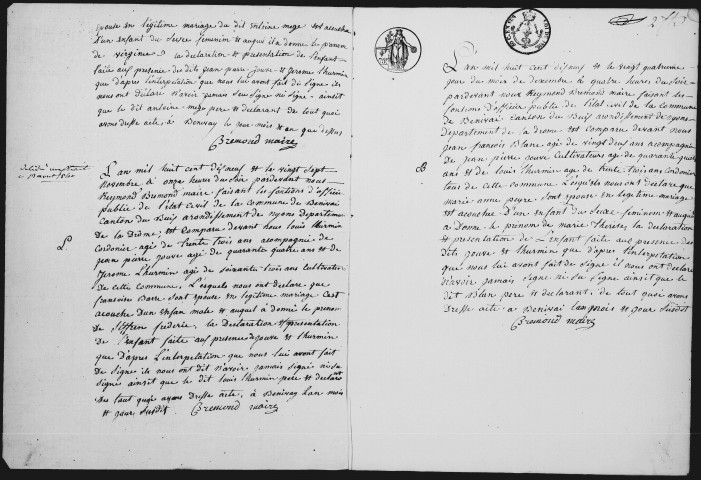 épouse en légitime mariage du dit antoine mege est acouchée
d'un enfant du sexe feminin et auquel il a donné le prenom
de virginie la declaration et presentation de l'enfant
faite aux presence des dits jean pierre jouve et jerome thurmin
que d'apres l'interpetation que nous lui avons fait de signe ils
nous ont déclaré n'avoir jamais su signe ni signé ainsit
que le dit antoine mege pere et declarant de tout quoi
avons dresse acte, à Benivay le jour mois et an que dessus
Bremond maire
Délivré un extrait
L
L'an mil huit cent dixneuf et le vingt sept
novembre à onze heures du soir pardevant nous
Reymond Bremond maire faisant les fontions d'officie
public de l'etat Civil de la commune de Benivai
canton du Buis arondissement de nyons departement
de la Drome; est Comparu devant nous louis thurmin
Cordonier agé de trente trois ans acompagnie de
jean pierre jouve agé de quarante quatre ans et de
jerome thurmin agé de soixante trois ans Cultivateurs
de cette commune. L'esquels nous ont declare que
francoise Barre sont epouse en legitime mariage c'est
acouche d'un enfan male et auquel à donné le prenon
de siffren frederic, la Declaration et presentation
de l'enfant faite aux presence de jouve et thurmin
que d'apres l'interpetation que nous lui avont fait
de signe ils nous ont dit n'avoir jamais signé ni su
signe ainsit que le dit louis thurmin pere et declarant
Des tout quoi avons Dresse acte, à Benivay l'an mois
et jour susdit. Bremond maire
2
B
L'an mil huit cent dixneuf et le vingt quatrieme
jour du mois de decembre à quatre heures du soir
pardevant nous Reymond Bremond maire faisant les
fontions d'officie public de l'etat Civil de la commune
de Benivai canton du Buis arondissement de nyons
departement de la drome est comparu devant nous
jean françois Blanc age de vingt deux ans acompagnie
de jean pierre jouve Cultivateurs age de quarante quatre
ans et de louis thurmin age de trente trois ans cordonier
tous de cette commune L'equels nous ont declare que
marie anne peyre sont epouse en legitime mariage
est acouche d'un enfant du sexe feminin et auquel
à Donné le prenoms de marie therese la declaration
et presentation de L'enfant faite aux presence des
dits jouve et thurmin que d'apres l'interpetation
que nous lui avont fait de signe il nous ont declare
n'avoir jamais signe ni su signe ainsit que le
dit Blanc pere et declarant, de tout quoi avons
Dresse acte à Benivai l'an mois et jour susdit
Bremond maire